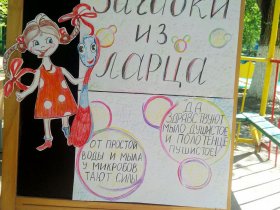 ЗАГАДКИ
ИЗ
ЛАРЦА
ДА
ЗДРАВСТВУЮТ
МЫЛО ДУШИСТОЕ
И ПОЛОТЕНЦЕ
ПУШИСТОЕ!
ОТ ПРОСТОЙ
ВОДЫ И МЫЛА
У МИКРОБОВ
ТАЮТ СИЛЫ